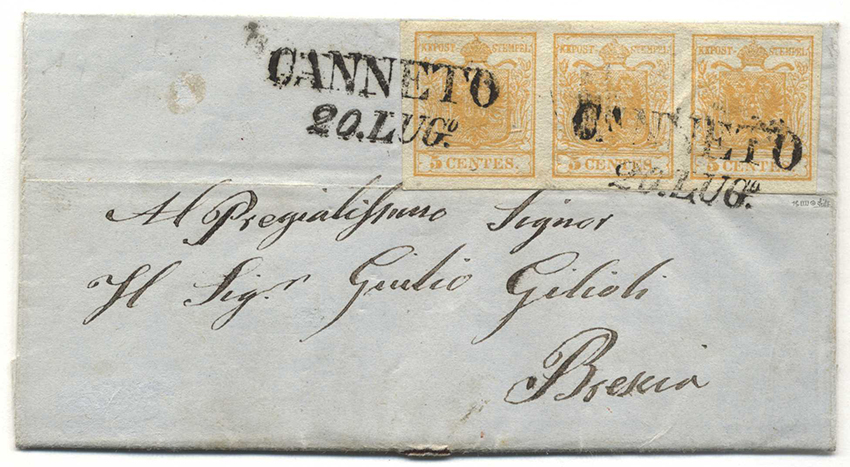 KKPOST-STEMPEL KKPOST-STEMPEL KKPOST-STEMPEL
CANNETO
20.LUG.º
5 CENTES. 5 CENTES. 5 CENTES.
CANNETO
20.LUG.º
Al Pregiatissimo Signor
Il Sig.r Giulio Gilioli
Brescia